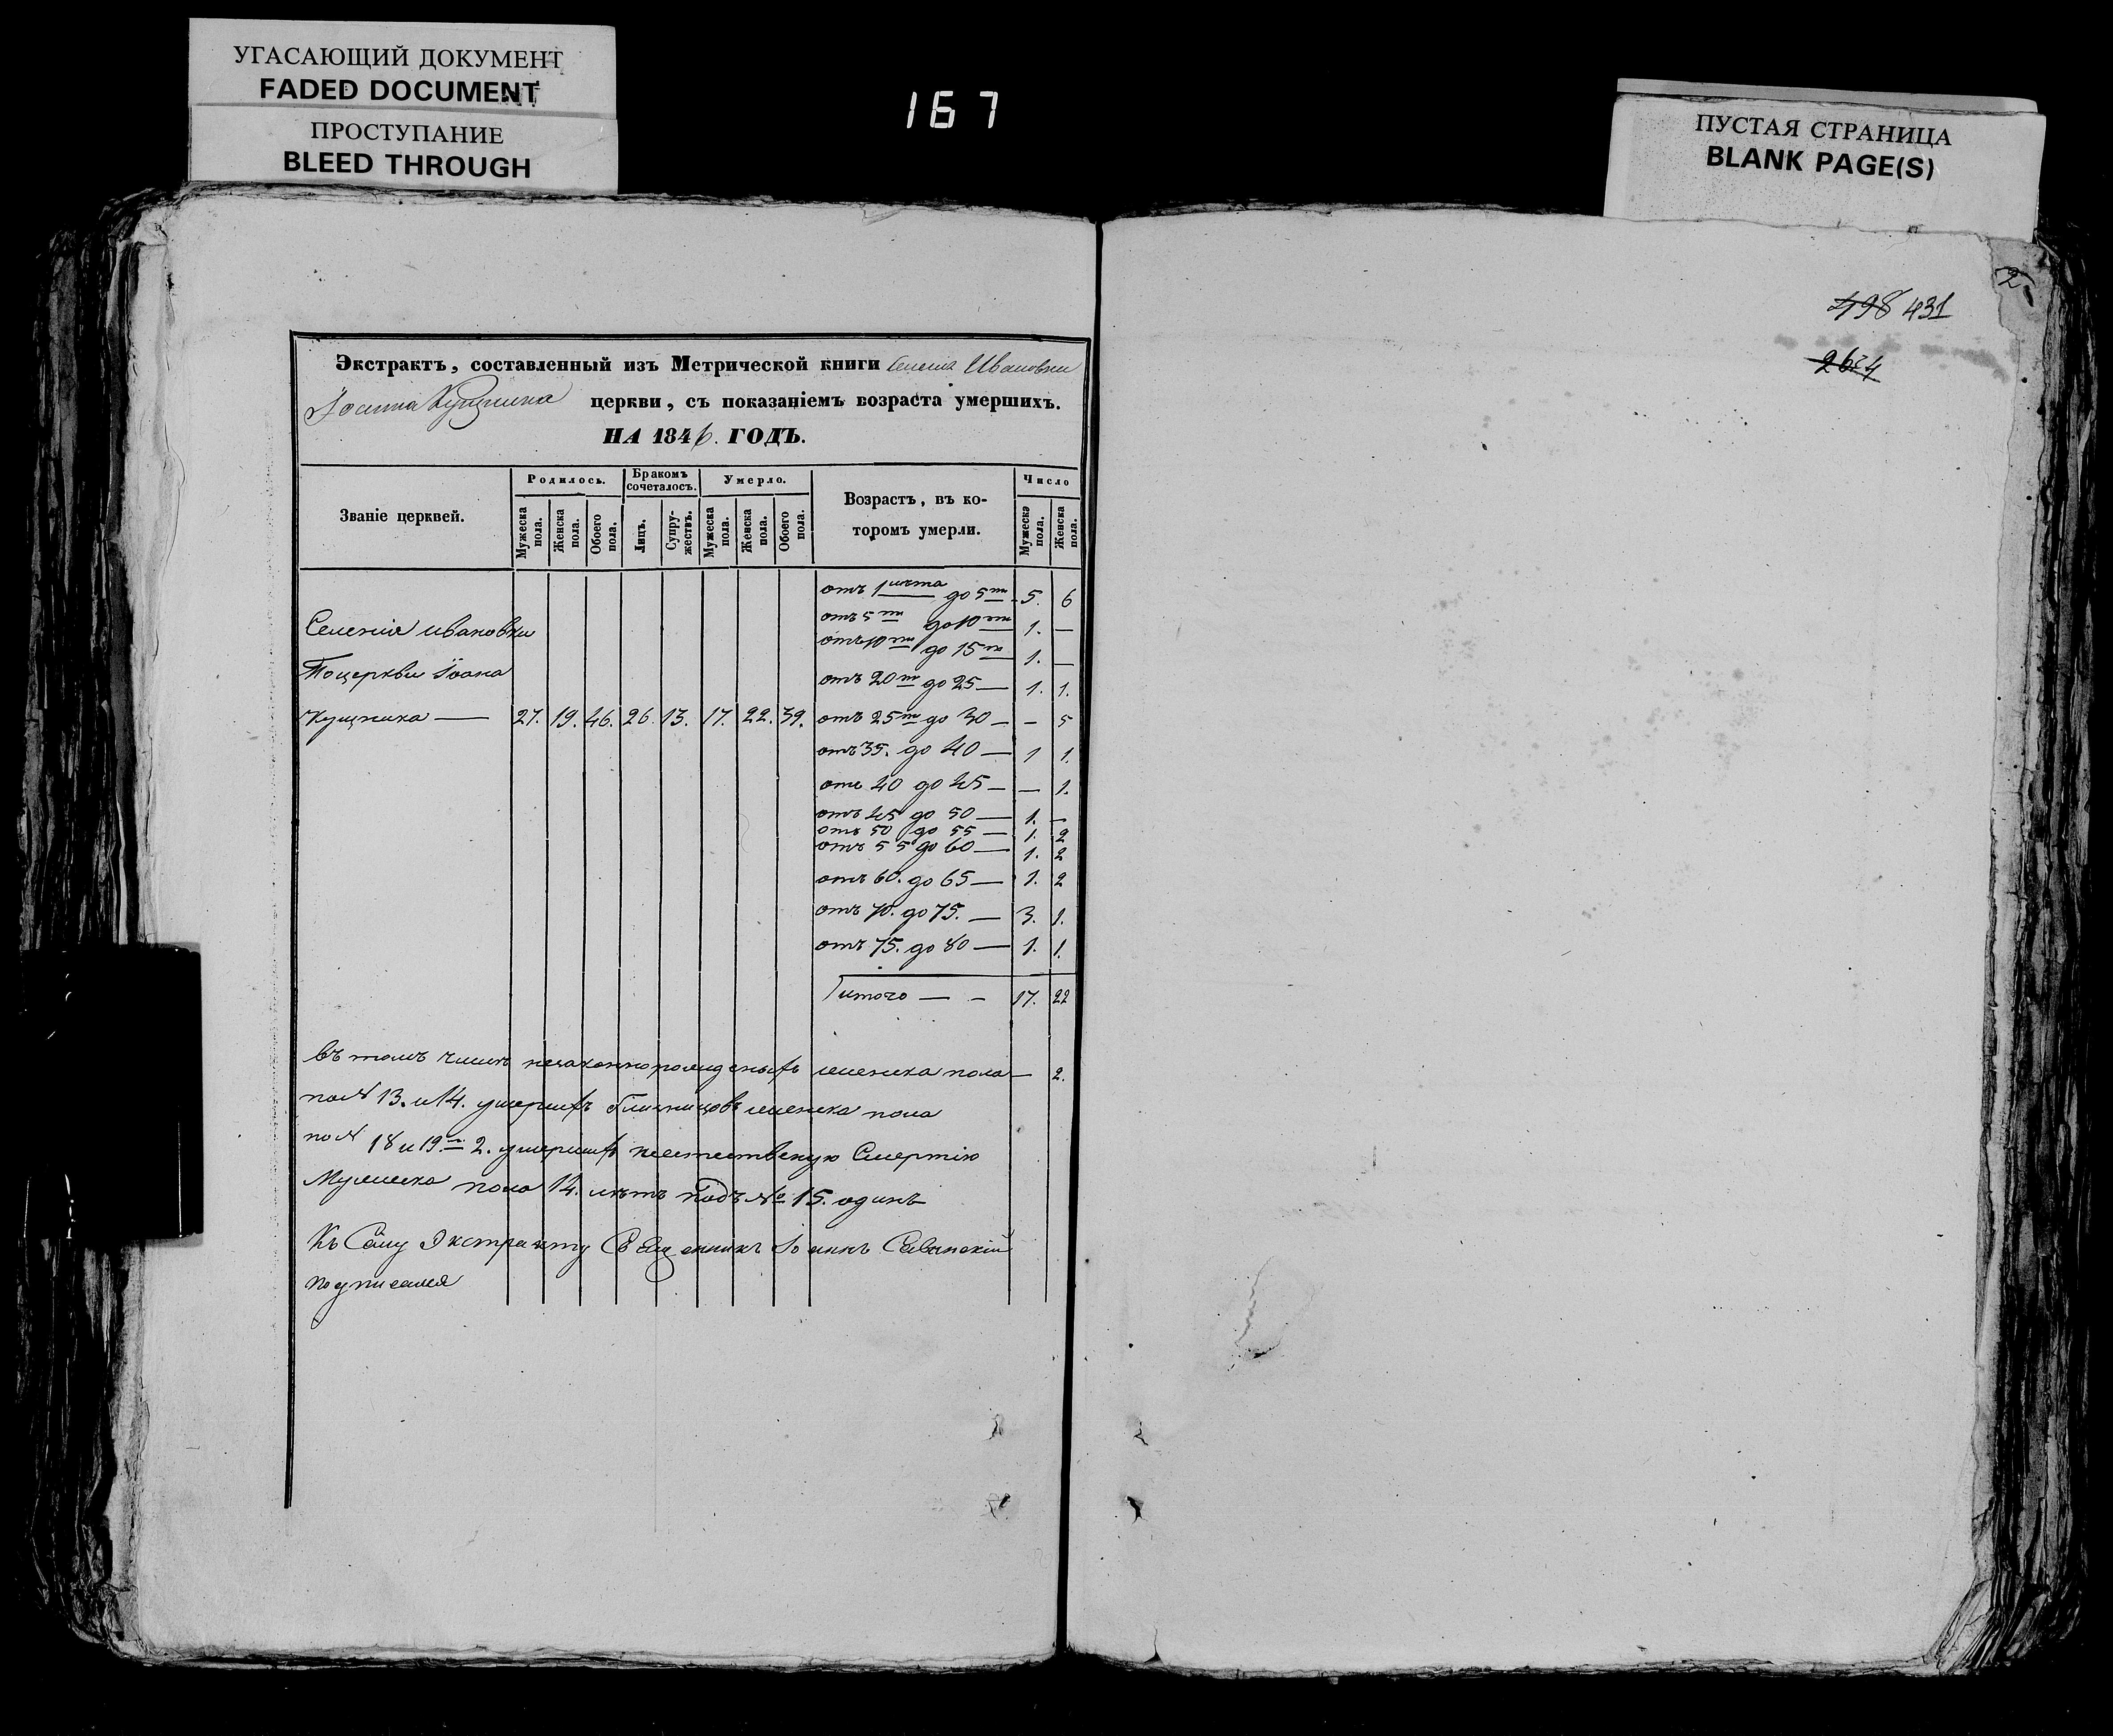 УГАСАЮЩИЙ ДОКУМЕНТ
FADED DOCUMENT
ПРОСТУПАНИЕ
BLEED THROUGH
167
ПУСТАЯ СТРАНИЦА
BLANK PAGE(S)
2
498 431
2624
Экстрактъ, составленный изъ Метрической книги Ивановки
церкви, съ показаніемъ возраста умершихъ.
НА 1846. ГОДЪ.
Званіе церквей.
Родилось.
Бракомъ сочеталось.
Умерло.
Возрастъ, въ которомъ умерли.
Число
Мужеска пола.
Женска пола.
Обоего пола.
Лицъ.
Супружествъ.
Мужеска пола.
Женска пола.
Обоего пола.
Мужеска пола.
Женска пола.
отъ 1 лѣта до 5ти 5. 6
отъ 5ти до 10ти 1. —
Селенія ивановки
отъ 10ти до 15ти 1. —
отъ 20ти до 25 — 1. 1.
27. 19. 46. 26. 13. 17. 22. 39. отъ 25ти до 30 — — 5
отъ 35. до 40 — 1 1.
отъ 40 до 45 — — 1.
отъ 45 до 50 — 1. —
отъ 50 до 55 — 1. 2
отъ 55 до 60 — 1. 2
отъ 60. до 65 — 1. 2
отъ 70. до 75. — 3. 1.
отъ 75. до 80 — 1. 1.
итого — — 17. 22
въ томъ числѣ незаконнорожденыхъ женска пола — 2.
по № 13. и 14. умершихъ близнецовъ женска пола
по № 18 и 19. 2. умершихъ неестественую Смертію
Мужеска пола 14. лѣтъ подъ № 15. одинъ
Къ Сему Экстракту Священникъ Іоаннъ
подписался